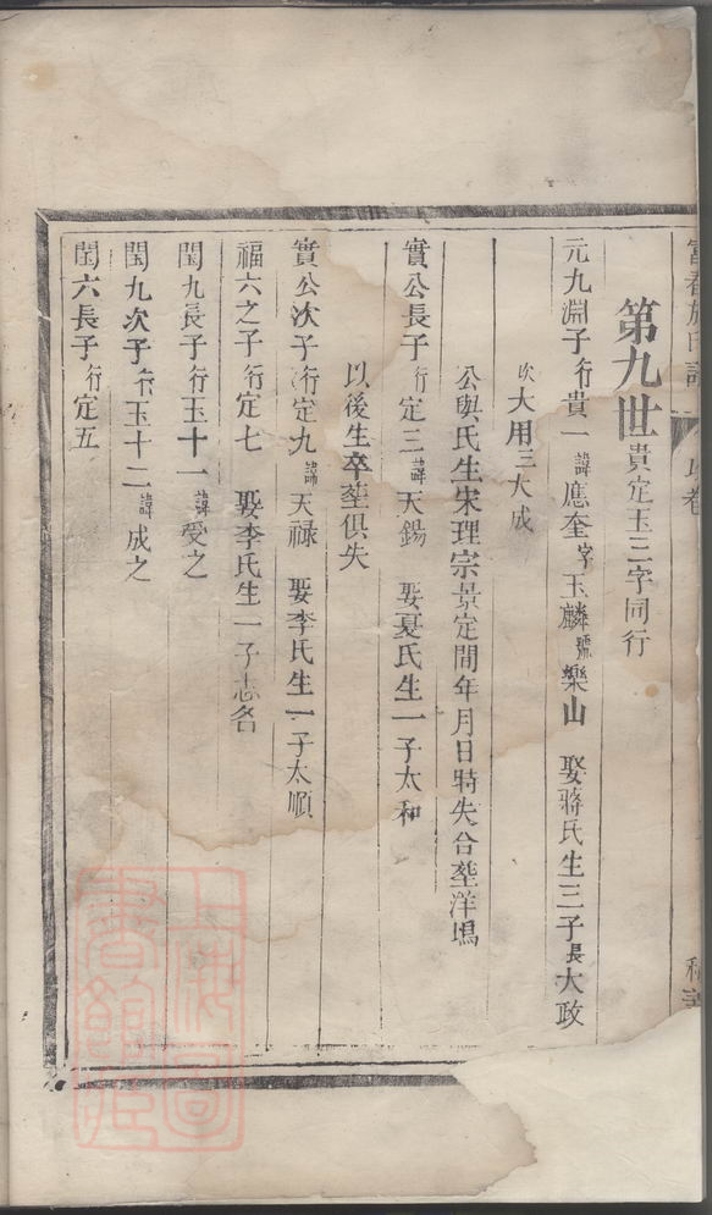 富春施氏譜
第九世貴定玉三字同行
元九淵子行貴一諱應奎字玉麟號樂山 娶蔣氏生三子長大政
次大用三大成
公與氏生宋理宗景定間年月日時失合塟洋塢
實公長子行定三諱天錫 娶夏氏生一子太和
以後生卒塟俱失
實公次子行定九諱天祿 娶李氏生一子太順
福六之子行定七 娶李氏生一子志名
閏九長子行玉十一諱受之
閏九次子行玉十二諱成之
閏六長子行定五
上海圖書館藏